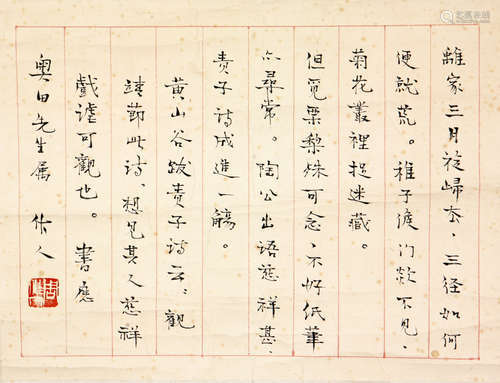 離家三月旋歸去、三徑如何
便就荒。稚子候門欵不見、
菊花叢裡捉迷藏。
但覓栗梨殊可念、不好紙筆
亦尋常。陶公出語慈祥甚、
責子詩成進一觴。
黃山谷跋責子詩云、觀
靖節此詩、想見其人慈祥
戲謔可觀也。書應
奧田先生屬 作人